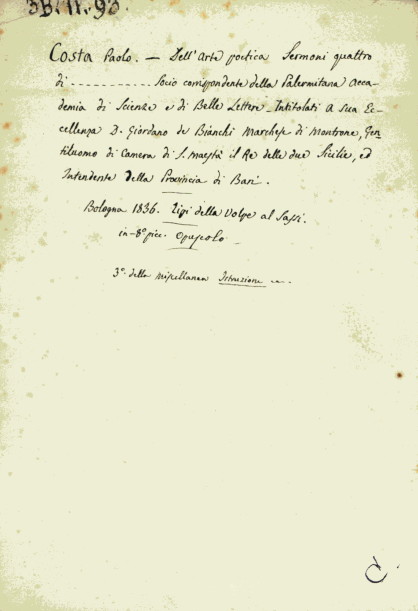 3B.11.93.
Costa Paolo. — Dell'Arte poetica Sermoni quattro
di ............. Socio corrispondente della Palermitana Acca-
demia di Scienze e di Belle Lettere. Intitolati a Sua Ec-
cellenza D. Giordano de Bianchi Marchese di Montrone, Gen-
tiluomo di Camera di S. Maestà il Re delle due Sicilie, ed
Intendente della Provincia di Bari.
Bologna 1836. Tipi della Volpe al Sassi.
in-8º picc. Opuscolo
3º della miscellanea Istruzione